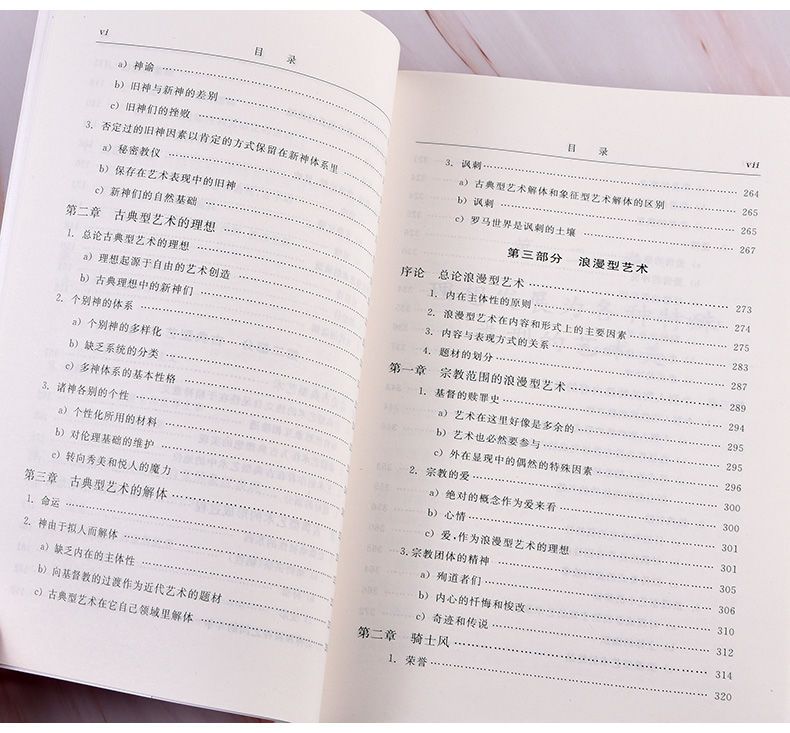 vi
目 录
a) 神谕
b) 旧神与新神的差别
c) 旧神们的挫败
3. 否定过的旧神因素以肯定的方式保留在新神体系里
a) 秘密教仪
b) 保存在艺术表现中的旧神
c) 新神们的自然基础
第二章 古典型艺术的理想
1. 总论古典型艺术的理想
a) 理想起源于自由的艺术创造
b) 古典理想中的新神们
2. 个别神的体系
a) 个别神的多样化
b) 缺乏系统的分类
c) 多神体系的基本性格
3. 诸神各别的个性
a) 个性化所用的材料
b) 对伦理基础的维护
c) 转向秀美和悦人的魔力
第三章 古典型艺术的解体
1. 命运
2. 神由于拟人而解体
a) 缺乏内在的主体性
b) 向基督教的过渡作为近代艺术的题材
c) 古典型艺术在它自己领域里解体
目 录
vii
3. 讽刺 264
a) 古典型艺术解体和象征型艺术解体的区别 265
b) 讽刺 265
c) 罗马世界是讽刺的土壤 267
第三部分 浪漫型艺术
序论 总论浪漫型艺术 273
1. 内在主体性的原则 274
2. 浪漫型艺术在内容和形式上的主要因素 275
3. 内容与表现方式的关系 283
4. 题材的划分 287
第一章 宗教范围的浪漫型艺术 289
1. 基督的赎罪史 294
a) 艺术在这里好像是多余的 295
b) 艺术也必然要参与 295
c) 外在显现中的偶然的特殊因素 296
2. 宗教的爱 300
a) 绝对的概念作为爱来看 300
b) 心情 301
c) 爱,作为浪漫型艺术的理想 301
3.宗教团体的精神 305
a) 殉道者们 306
b) 内心的忏悔和悛改 310
c) 奇迹和传说 312
第二章 骑士风 314
1. 荣誉 320